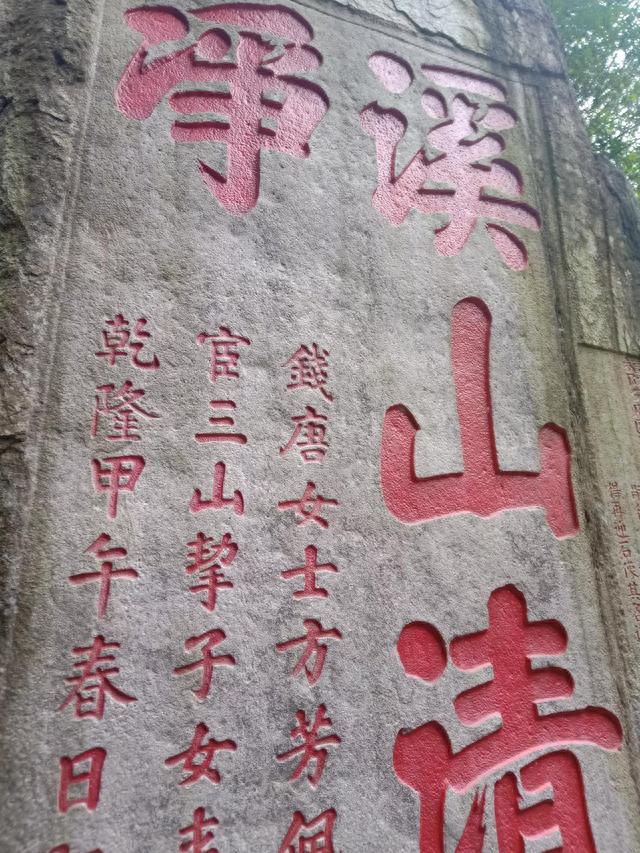 溪山清
净
錢唐女士方芳佩
宦三山挈子女
乾隆甲午春日